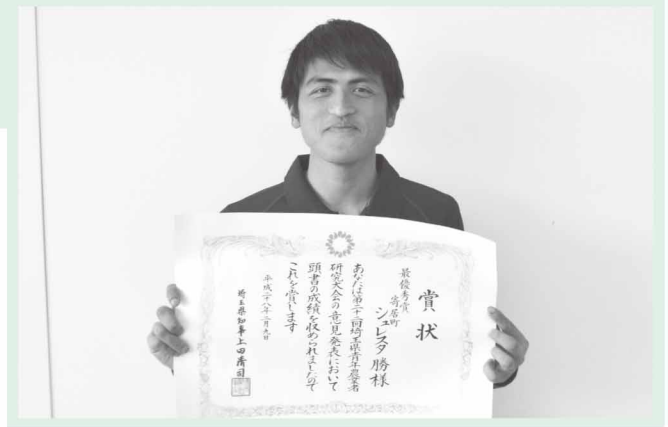 賞状
最優秀賞
寄居町
シュレスタ 勝 様
あなたは第二十二回埼玉県青年農業者
研究大会の意見発表において
頭書の成績を収められましたので
これを賞します
平成二十八年二月五日
埼玉県知事上田清司